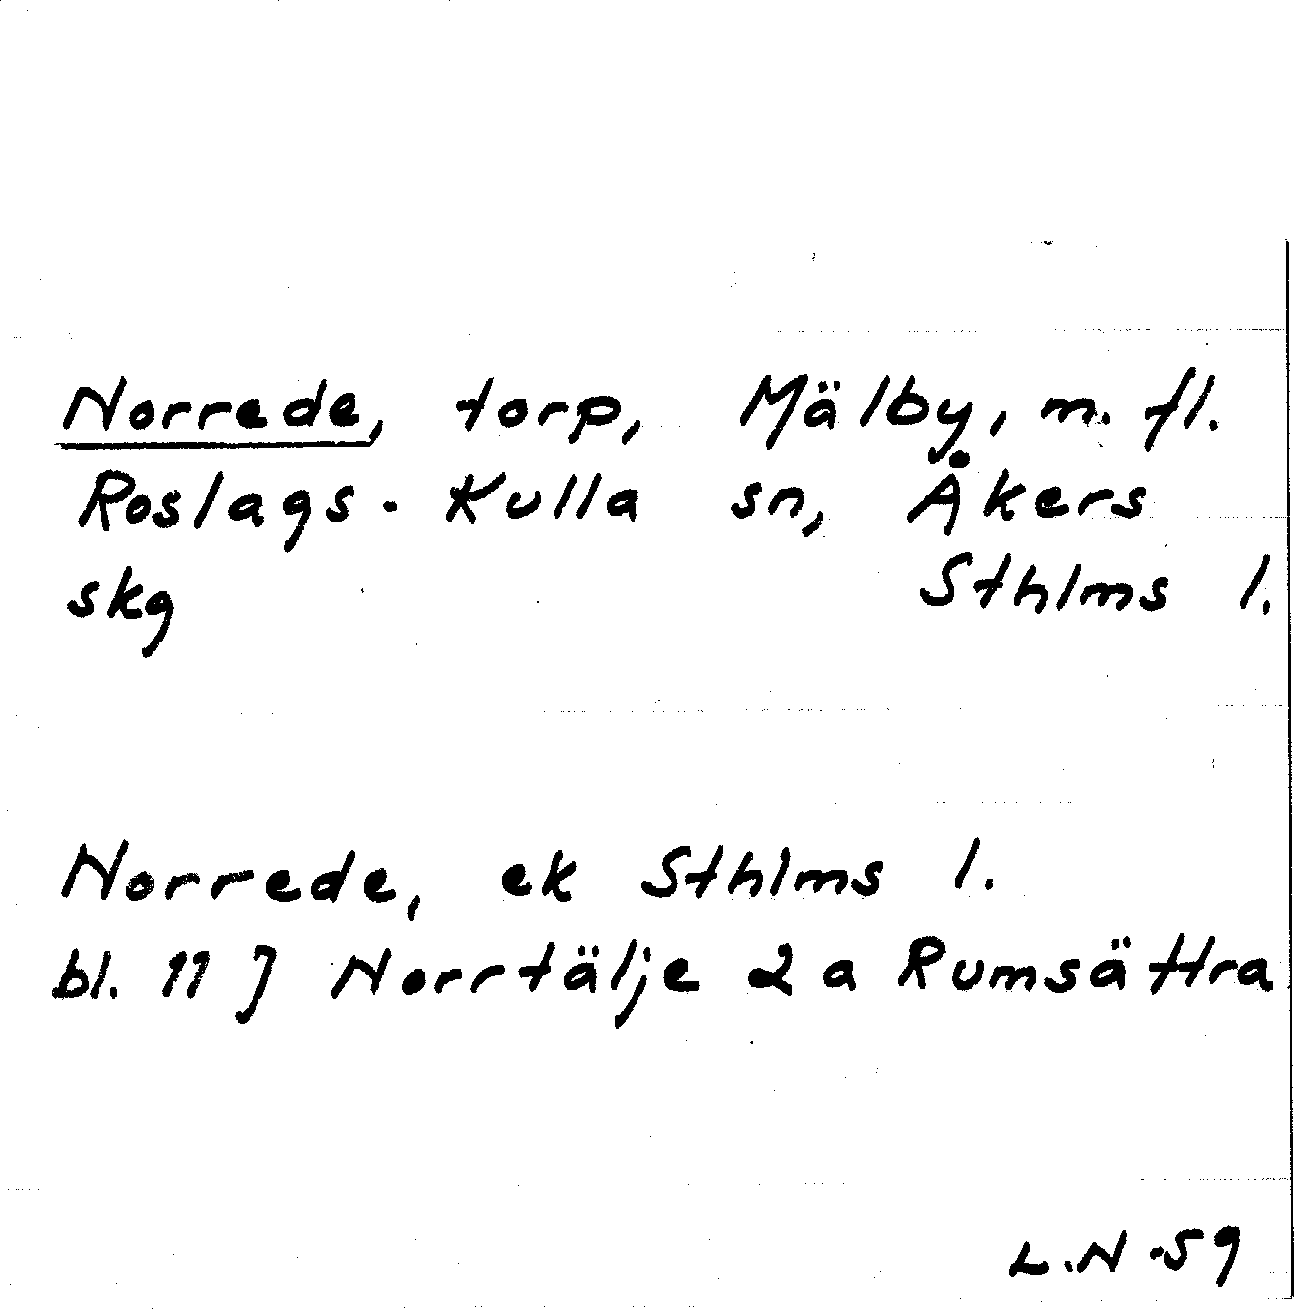 Norrede, torp, Mälby, m. fl.
Roslags-Kulla sn, Åkers
skg Sthlms l.
Norrede, ek Sthlms l.
bl. 11 J Norrtälje 2 a Rumsättra
L.N -59